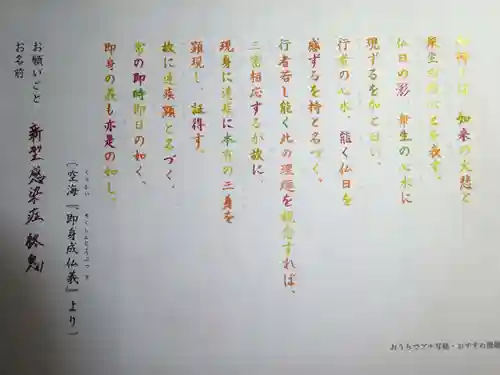 加持とは、如来の大悲と
衆生の信心とを表す。
仏日の影、衆生の心水に
現ずるを加と曰い、
行者の心水、能く仏日を
感ずるを持と名づく。
行者若し能く此の理趣を観念すれば、
三密相応するが故に、
現身に速疾に本有の三身を
顕現し、証得す。
故に速疾顕と名づく。
常の即時即日の如く、
即身の義も亦是の如し。
(空海『即身成仏義』より)
くうかい
そくしんじょうぶつぎ
お願いごと 新型感染症 終息
お名前
おうちでプチ写経・おすすめ